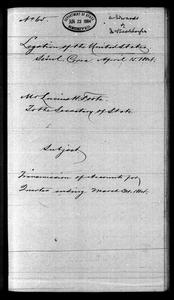 No 60.
DEPARTMENT OF STATE
JUN 23 1884
Legation of the United States,
Seoul, Corea April 15. 1884.
Mr Lucius H. Foote
To the Secretary of State
Subject
Transmission of Accounts for
Quarter ending March 31. 1884.